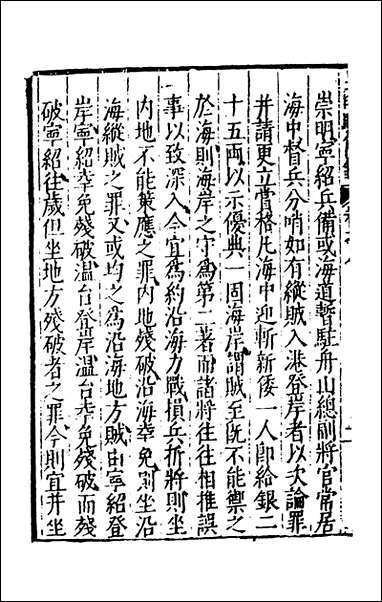 崇明寧紹兵備或海道暫駐舟山總副將官常居
海中督兵分哨如有縱賊入港登岸者以次論罪
并請更立賞格凡海中迎斬新倭一人卽給銀二
十五兩以示優典一固海岸謂賊至旣不能禦之
於海則海岸之守爲第二著而諸將往往相推誤
事以致深入今宜爲約沿海力戰損兵折將則坐
内地不能策應之罪内地殘破沿海幸免則坐沿
海縱賊之罪又或均之爲沿海地方賊由寧紹登
岸寧紹幸免殘破温台登岸温台幸免殘破而殘
破寧紹往歲但坐地方殘破者之罪今則宜并坐